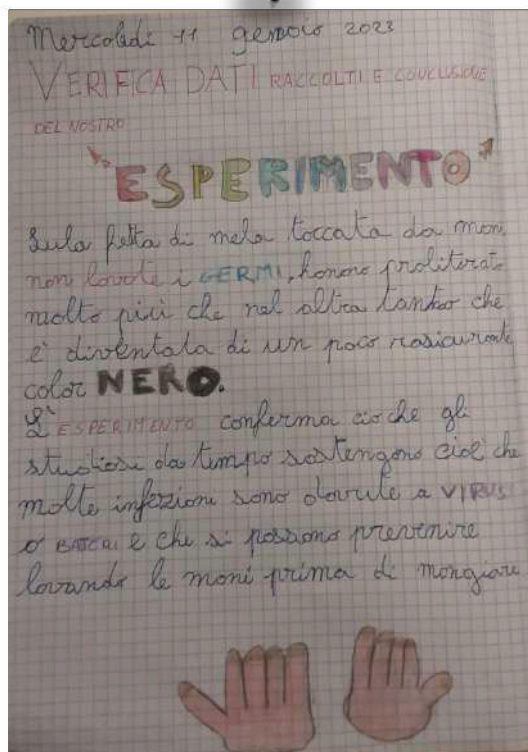 Mercoledì 11 gennaio 2023
VERIFICA DATI RACCOLTI E CONCLUSIONE
DEL NOSTRO
ESPERIMENTO
Sula fetta di mela toccata da mani
non lavate i GERMI, hanno proliterato
molto più che nel altra tanto che
e' diventata di un poco rasicurante
color NERO.
L'ESPERIMENTO conferma ciò che gli
studiosi da tempo sostengono cioè che
molte infezioni sono dovute a VIRUS
o BATERI e che si possono prevenire
lavando le mani prima di mangiare